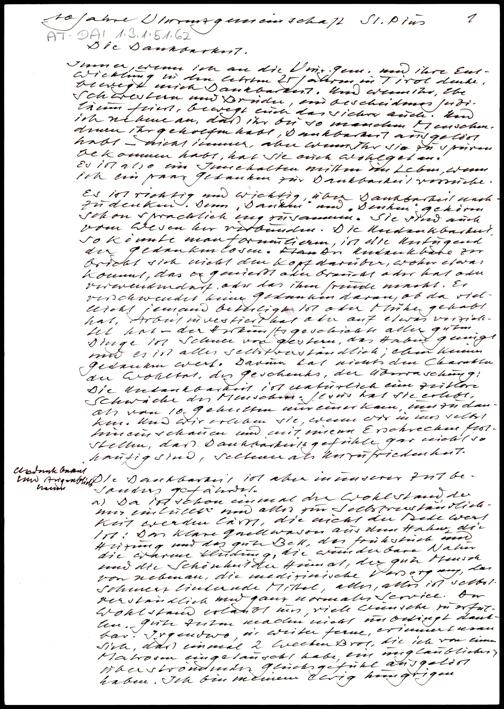 10 Jahre Vinzenzgemeinschaft St. Pius 1
AT-DAI 1.3.1-51.62
Die Dankbarkeit.
Immer, wenn ich an die Vinz. gem. und ihre Ent-
wicklung in den letzten 25 Jahren in Tirol denke,
bewegt mich Dankbarkeit. Und wenn ihr, lbe
Schwestern und Brüder, ein bescheidenes Jubi-
läum feiert, bewegt euch das sicher auch. Und
ich nehme an, daß ihr bei so manchem Menschen,
denen ihr geholfen habt, Dankbarkeit ausgelöst
habt – nicht immer, aber wenn Ihr sie zu spüren
bekommen habt, hat sie euch wohlgetan.
Es ist also ein Innehalten mitten im Leben, wenn
ich ein paar Gedanken zur Dankbarkeit versuche.
Es ist richtig und wichtig, über Dankbarkeit nach-
zudenken. Denn, "Danken" und "Denken" gehören
schon sprachlich eng zusammen. Sie sind auch
vom Wesen her verbunden. Die Undankbarkeit,
so könnte man formulieren, ist die Untugend
der Gedankenlosen. Der Undankbare zer-
bricht sich nicht den Kopf darüber, woher etwas
kommt, das er genießt oder braucht oder hat oder
verwenden darf, oder das ihm Freude macht. Er
verschwendet keine Gedanken daran, ob da viel-
leicht jemand beteiligt ist oder Mühe gehabt
hat, Arbeit investiert hat oder auf etwas verzich-
tet hat – der Entstehungsgeschichte aller guten
Dinge ist Schnee von gestern, das Haben genügt
und es ist alles selbstverständlich; eben keinen
Gedanken wert. Darum hat nichts den Charakter
der Wohltat, des Geschenks, der Überraschung.
Die Undankbarkeit ist natürlich eine zeitlose
Schwäche des Menschen. Jesus hat sie erlebt,
als von 10 Geheilten nur einer kam, um zu dan-
ken. Und wir erleben sie, wenn wir in uns selbst
hineinschauen und mit einem Erschrecken fest-
stellen, dass Dankbarkeitsgefühle gar nicht so
häufig sind, seltener als Unzufriedenheit.
Undankbarkeit
im Augenblick
Die Dankbarkeit ist aber in unserer Zeit be-
sonders gefährdet.
a) Da ist schon einmal der Wohlstand, der
uns einlullt und alles zur Selbstverständlich-
keit werden lässt, die nicht der Rede wert
ist: Das klare Quellwasser aus dem Hahn, die
Heizung und das gute Bett, das Frühstück und
die warme Kleidung, die wunderbare Natur
und die Schönheit der Heimat, der gute Mensch
von nebenan, die medizinische Versorgung, das
schmerzlindernde Mittel, alles, alles ist selbst-
verständlich und ganz normales Service. Der
Wohlstand erlaubt uns, viele Wünsche zu erfül-
len. Gute Zeiten machen nicht unbedingt dank-
bar. Irgendwo, in weiter Ferne, erinnert man
sich, dass einmal 2 Wecken Brot, die ich von einem
Matrosen eingetauscht habe, ein unglaubliches,
überströmendes Glücksgefühl ausgelöst
haben. Ich bin meinem ewig hungrigen